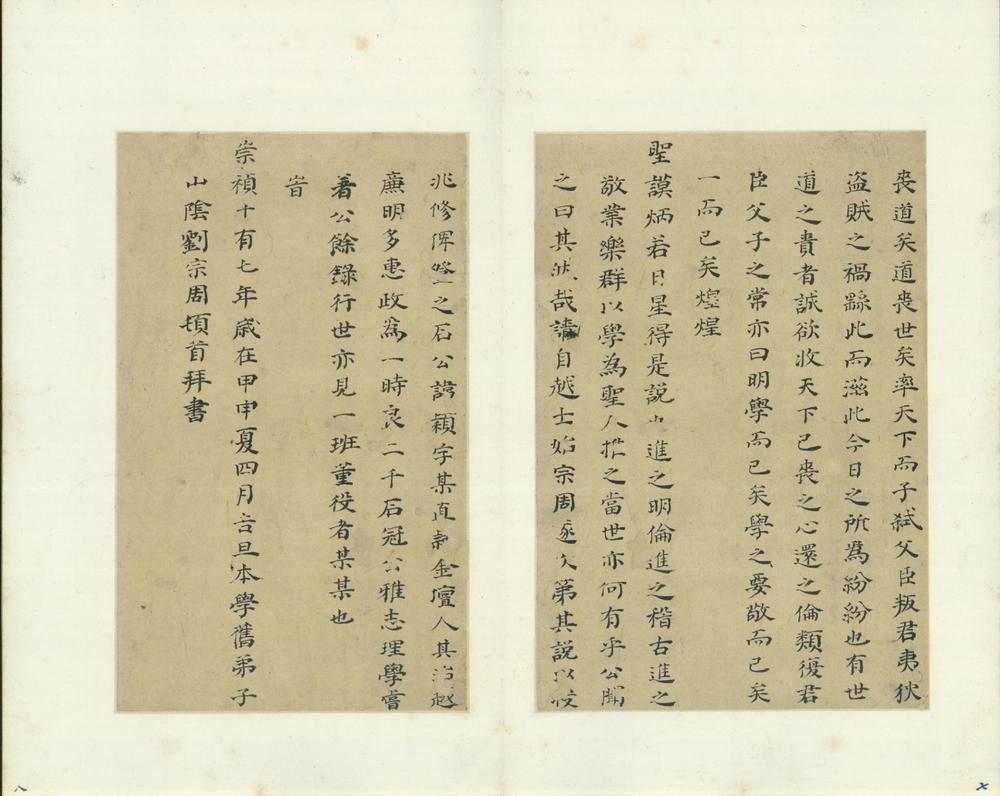 喪道矣道喪世矣率天下而子弒父臣叛君夷狄
盜賊之禍繇此而滋此今日之所為紛紛也有世
道之責者誠欲收天下已喪之心還之倫類復君
臣父子之常亦曰明學而已矣學之要敬而已矣
一而已矣煌煌
聖謨炳若日星得是說也進之明倫進之稽古進之
敬業樂群以學為聖人推之當世亦何有乎公聞
之曰其然哉請自越士始宗周遂次第其說以
兆修葺之石公諱穎字某直隸金壇人其治越
廉明多惠政為一時良二千石冠公雅志理學嘗
著公餘錄行世亦見一班董役者某某也
旹
崇禎十有七年歲在甲申夏四月吉旦本學舊弟子
山陰劉宗周頓首拜書
七
八